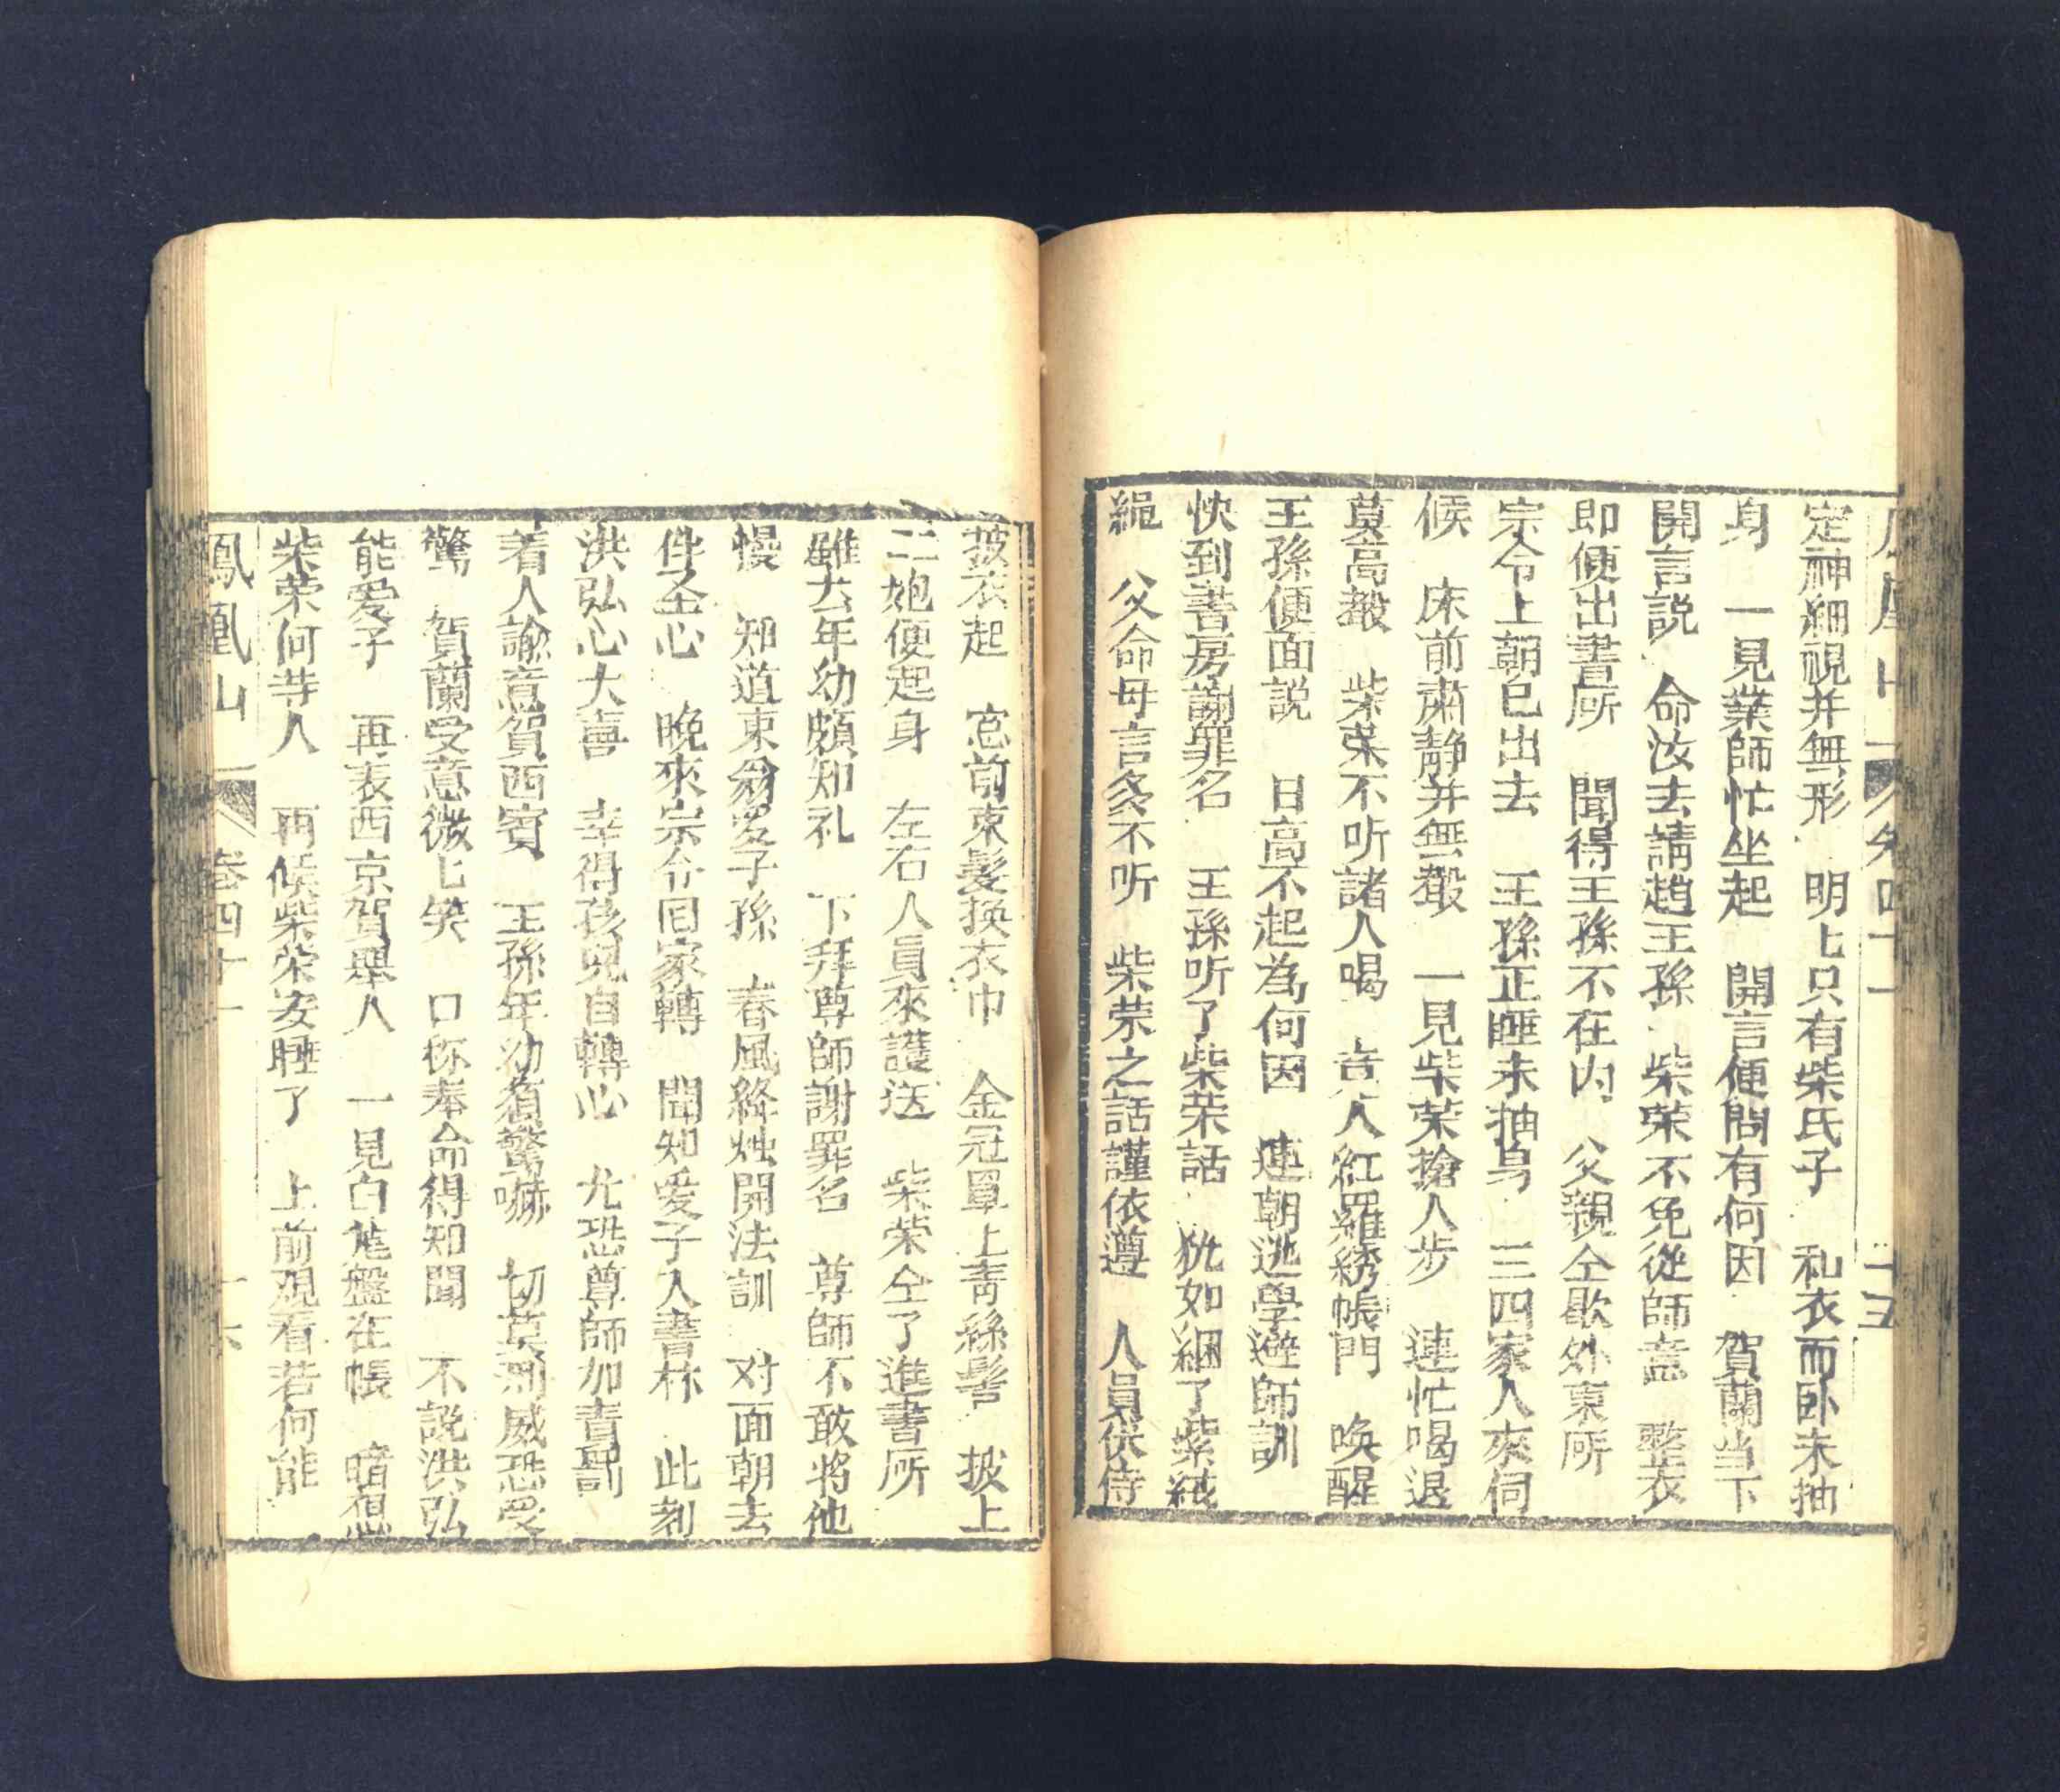 定神細視并無形　明匕只有柴氏子　和衣而卧未抽
身　一見業師忙坐起　開言便問有何因　賀蘭当下
開言説　命汝去請趙王孫　柴荣不免從師意　整衣
即便出書所　聞得王孫不在内　父親仝歇外東所
宗令上朝已出去　王孫正睡未抽身　三四家人來伺
候　床前肅静并無𣪊　一見柴荣搶人步　連忙喝退
莫高𣪊　柴荣不听諸人喝　人紅羅綉帳門　喚醒
王孫便面説　日高不起為何因　連朝逃學避師訓
快到書房謝罪名　王孫听了柴荣話　犹如綑了紫絨
繩　父命母言多不听　柴荣之話謹依遵　人員伏侍
披衣起　窓前束髮换衣巾　金冠罩上青絲髻　披上
二𫰡便起身　左右人員來護送　柴荣仝了進書所
雖去年幼頗知礼　下拜尊師謝罪名　尊師不敢将他
慢　知道東翁愛子孫　春風絳烛開法訓　对面朝去
伴圣心　晚來宗令囘家轉　聞知愛子入書林　此刻
洪弘心大喜　幸得孩兒自轉心　尤恐尊師加責罰
着人諭意賀西賓　王孫年幼須驚嚇　切莫威恐受
驚　賀蘭受意微匕笑　口称奉命得知聞　不説洪弘
能愛子　再表西京賀舉人　一見白龍盤在帳　暗想
柴荣何等人　再候柴荣安睡了　上前观看若何能
鳳凰山　卷四十一　十六